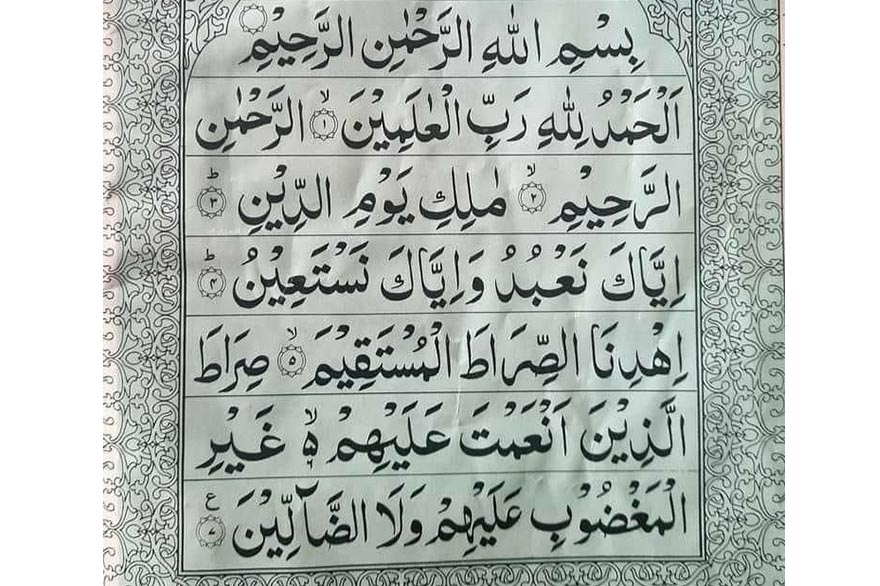 بِسْمِ اللهِ الرَّحْمٰنِ الرَّحِيْمِ
اَلْحَمْدُ لِلّٰهِ رَبِّ الْعٰلَمِيْنَ ۙ﴿۱﴾ الرَّحْمٰنِ
الرَّحِيْمِ ۙ﴿۲﴾ مٰلِكِ يَوْمِ الدِّيْنِ ؕ﴿۳﴾
اِيَّاكَ نَعْبُدُ وَاِيَّاكَ نَسْتَعِيْنُ ؕ﴿۴﴾
اِهْدِنَا الصِّرَاطَ الْمُسْتَقِيْمَ ۙ﴿۵﴾ صِرَاطَ
الَّذِيْنَ اَنْعَمْتَ عَلَيْهِمْ ۙ۬ۥ غَيْرِ
الْمَغْضُوْبِ عَلَيْهِمْ وَلَا الضَّآلِّيْنَ ﴿۷﴾ ع